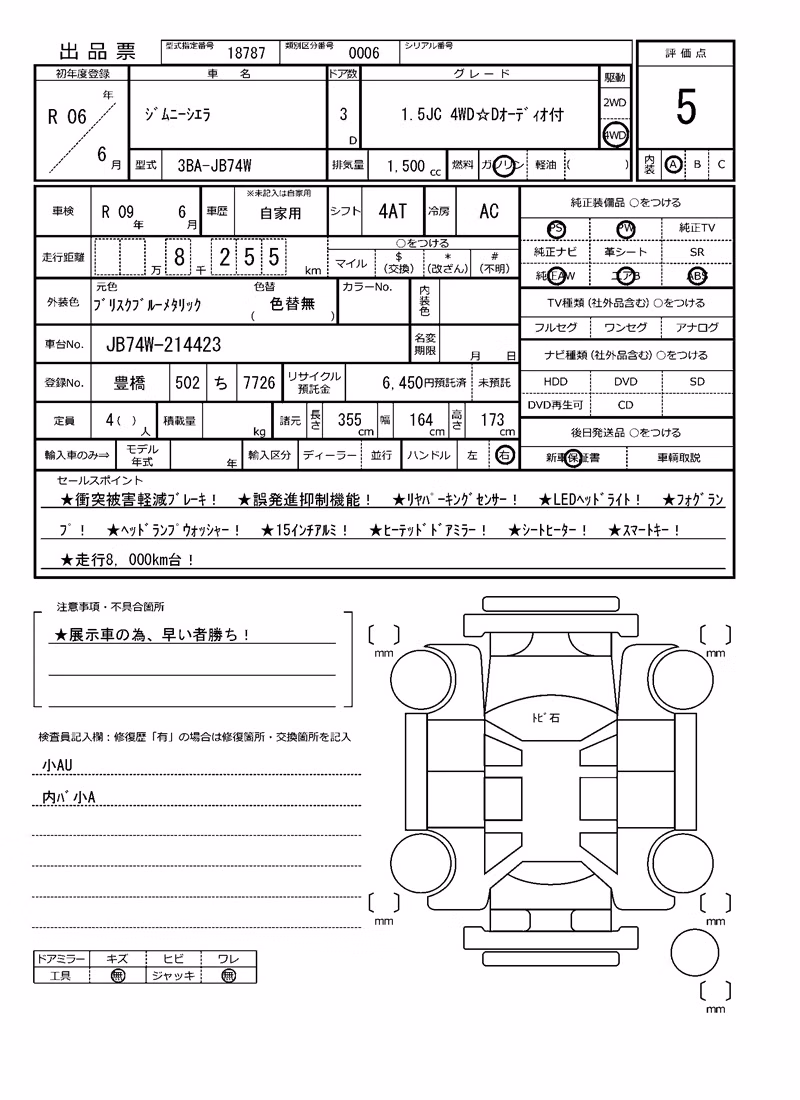 出品票 型式指定番号 18787 類別区分番号 0006 シリアル番号
評価点
5
内装 A B C
初年度登録 車名 ドア数 グレード 駆動
R 06 年 6 月 ｼﾞﾑﾆｰｼｴﾗ 3 D 1.5JC 4WD☆Dｵｰﾃﾞｨｵ付 2WD
4WD
型式 3BA-JB74W 排気量 1,500 cc 燃料 ガソリン 軽油 ( )
車検 R 09 年 6 月 車歴 ※未記入は自家用 自家用 シフト 4AT 冷房 AC
走行距離 万 8 千 2 5 5 km ○をつける
マイル $(交換) *(改ざん) #(不明)
外装色 元色 ﾌﾞﾘｽｸﾌﾞﾙｰﾒﾀﾘｯｸ 色替 ( 色替無 ) カラーNo. 内装色
車台No. JB74W-214423 名変期限 月 日
登録No. 豊橋 502 ち 7726 リサイクル預託金 6,450円預託済 未預託
定員 4 ( ) 人 積載量 kg 諸元 長さ 355 cm 幅 164 cm 高さ 173 cm
輸入車のみ⇒ モデル年式 年 輸入区分 ディーラー 並行 ハンドル 左 右
純正装備品 ○をつける
PS PW 純正TV
純正ナビ 革シート SR
純正AW エアB ABS
TV種類(社外品含む) ○をつける
フルセグ ワンセグ アナログ
ナビ種類(社外品含む) ○をつける
HDD DVD SD
DVD再生可 CD
後日発送品 ○をつける
新車保証書 車輌取説
セールスポイント
★衝突被害軽減ﾌﾞﾚｰｷ！ ★誤発進抑制機能！ ★ﾘﾔﾊﾟｰｷﾝｸﾞｾﾝｻｰ！ ★LEDﾍｯﾄﾞﾗｲﾄ！ ★ﾌｫｸﾞﾗﾝ
ﾌﾟ！ ★ﾍｯﾄﾞﾗﾝﾌﾟｳｫｯｼｬｰ！ ★15ｲﾝﾁｱﾙﾐ！ ★ﾋｰﾃｯﾄﾞﾄﾞｱﾐﾗｰ！ ★ｼｰﾄﾋｰﾀｰ！ ★ｽﾏｰﾄｷｰ！
★走行8，000km台！
注意事項・不具合箇所
★展示車の為、早い者勝ち！
検査員記入欄：修復歴「有」の場合は修復箇所・交換箇所を記入
小AU
内ﾊﾞ小A
ドアミラー キズ ヒビ ワレ
工具 無 ジャッキ 無
mm mm
ﾄﾋﾞ石
mm mm
mm